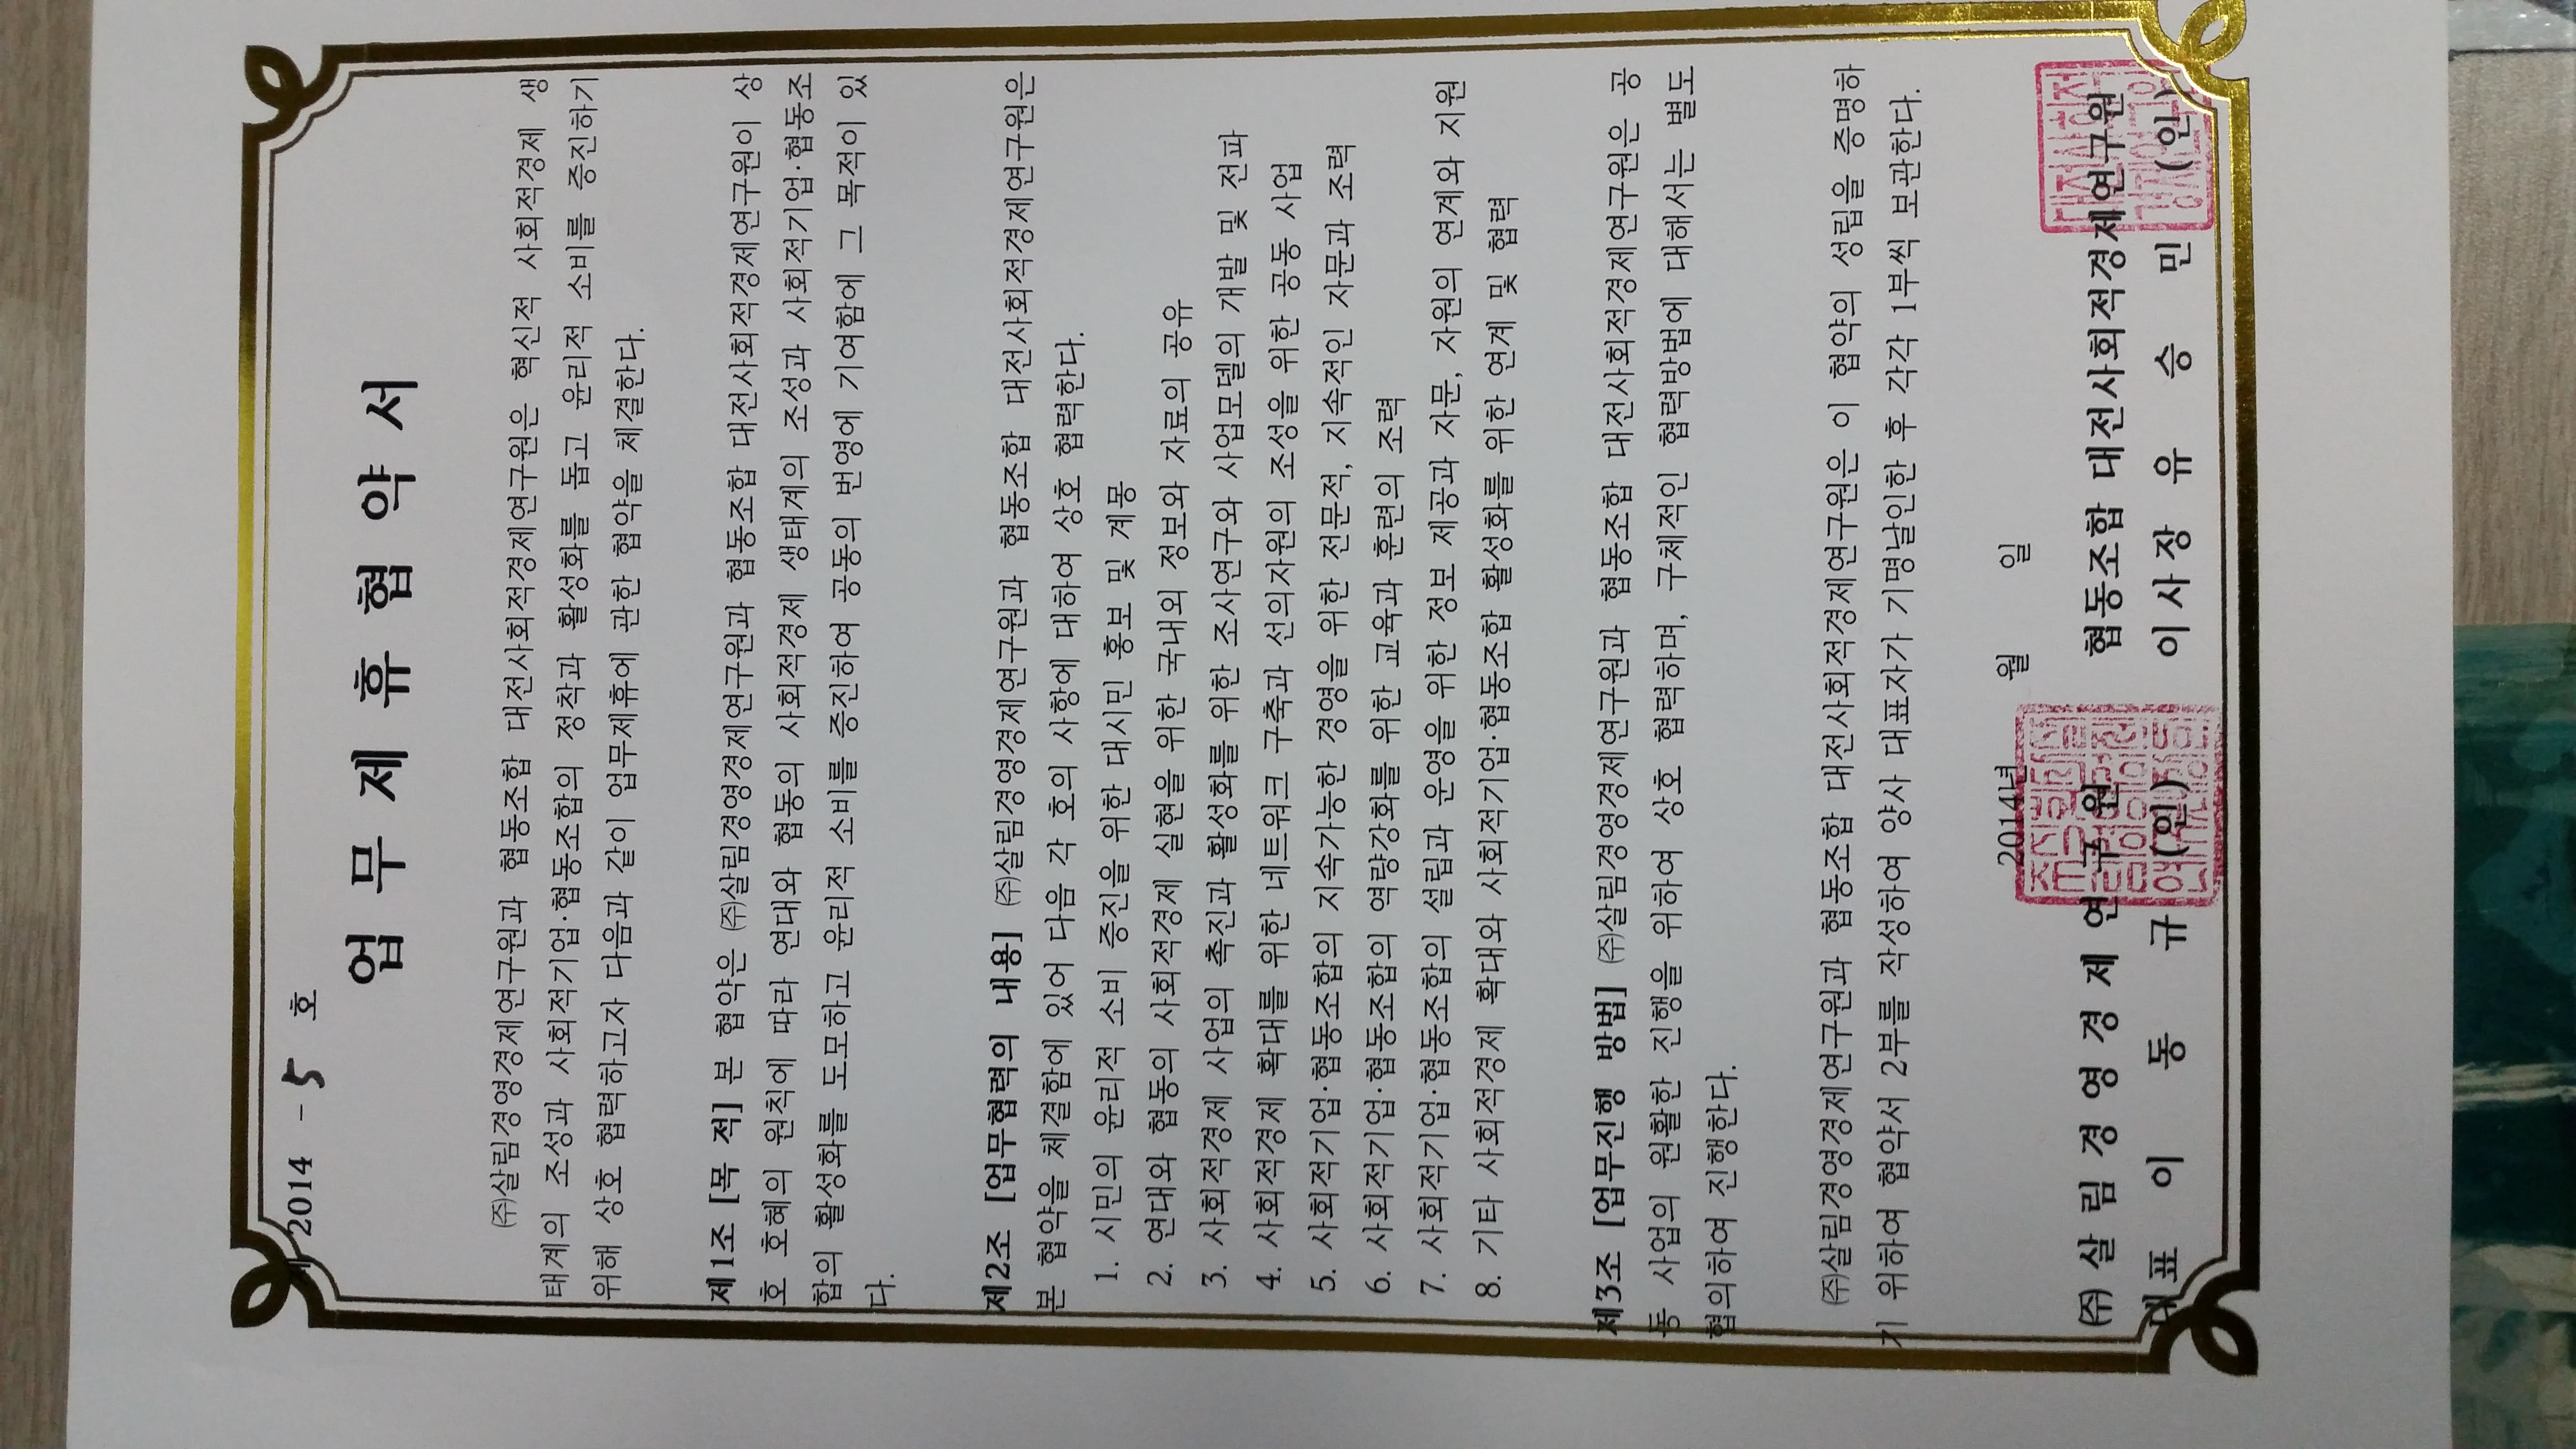 제 2014 - 5 호
업 무 제 휴 협 약 서
㈜살림경영경제연구원과 협동조합 대전사회적경제연구원은 혁신적 사회적경제 생
태계의 조성과 사회적기업·협동조합의 정착과 활성화를 돕고 윤리적 소비를 증진하기
위해 상호 협력하고자 다음과 같이 업무제휴에 관한 협약을 체결한다.
제1조 [목 적] 본 협약은 ㈜살림경영경제연구원과 협동조합 대전사회적경제연구원이 상
호 호혜의 원칙에 따라 연대와 협동의 사회적경제 생태계의 조성과 사회적기업·협동조
합의 활성화를 도모하고 윤리적 소비를 증진하여 공동의 번영에 기여함에 그 목적이 있
다.
제2조 [업무협력의 내용] ㈜살림경영경제연구원과 협동조합 대전사회적경제연구원은
본 협약을 체결함에 있어 다음 각 호의 사항에 대하여 상호 협력한다.
1. 시민의 윤리적 소비 증진을 위한 대시민 홍보 및 계몽
2. 연대와 협동의 사회적경제 실현을 위한 국내외 정보와 자료의 공유
3. 사회적경제 사업의 촉진과 활성화를 위한 조사연구와 사업모델의 개발 및 전파
4. 사회적경제 확대를 위한 네트워크 구축과 선의자원의 조성을 위한 공동 사업
5. 사회적기업·협동조합의 지속가능한 경영을 위한 전문적, 지속적인 자문과 조력
6. 사회적기업·협동조합의 역량강화를 위한 교육과 훈련의 조력
7. 사회적기업·협동조합의 설립과 운영을 위한 정보 제공과 자문, 자원의 연계와 지원
8. 기타 사회적경제 확대와 사회적기업·협동조합 활성화를 위한 연계 및 협력
제3조 [업무진행 방법] ㈜살림경영경제연구원과 협동조합 대전사회적경제연구원은 공
동 사업의 원활한 진행을 위하여 상호 협력하며, 구체적인 협력방법에 대해서는 별도
협의하여 진행한다.
㈜살림경영경제연구원과 협동조합 대전사회적경제연구원은 이 협약의 성립을 증명하
기 위하여 협약서 2부를 작성하여 양사 대표자가 기명날인한 후 각각 1부씩 보관한다.
2014년 월 일
㈜ 살 림 경 영 경 제 연구원 협동조합 대전사회적경제연구원
대표 이 동 규 (인) 이사장 유 승 민 (인)